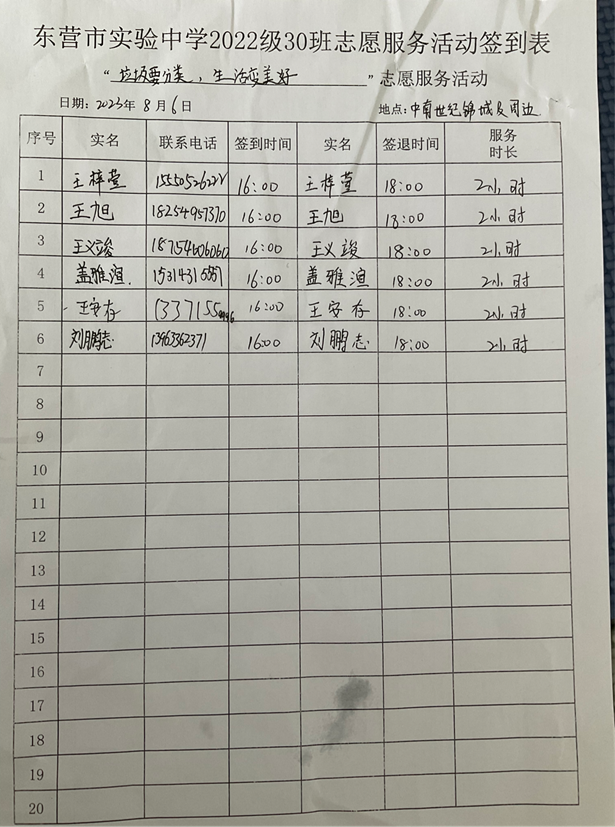 东营市实验中学2022级30班志愿服务活动签到表
“垃圾要分类,生活变美好”志愿服务活动
日期:2023年8月6日 地点:中南世纪锦城及周边
序号 实名 联系电话 签到时间 实名 签退时间 服务时长
1 王梓萱 16:00 王梓萱 18:00 2小时
2 王旭 18254957370 16:00 王旭 18:00 2小时
3 王义竣 16:00 王义竣 18:00 2小时
4 盖雅渲 16:00 盖雅渲 18:00 2小时
5 王安存 16:00 王安存 18:00 2小时
6 刘鹏志 13963362371 16:00 刘鹏志 18:00 2小时
7
8
9
10
11
12
13
14
15
16
17
18
19
20